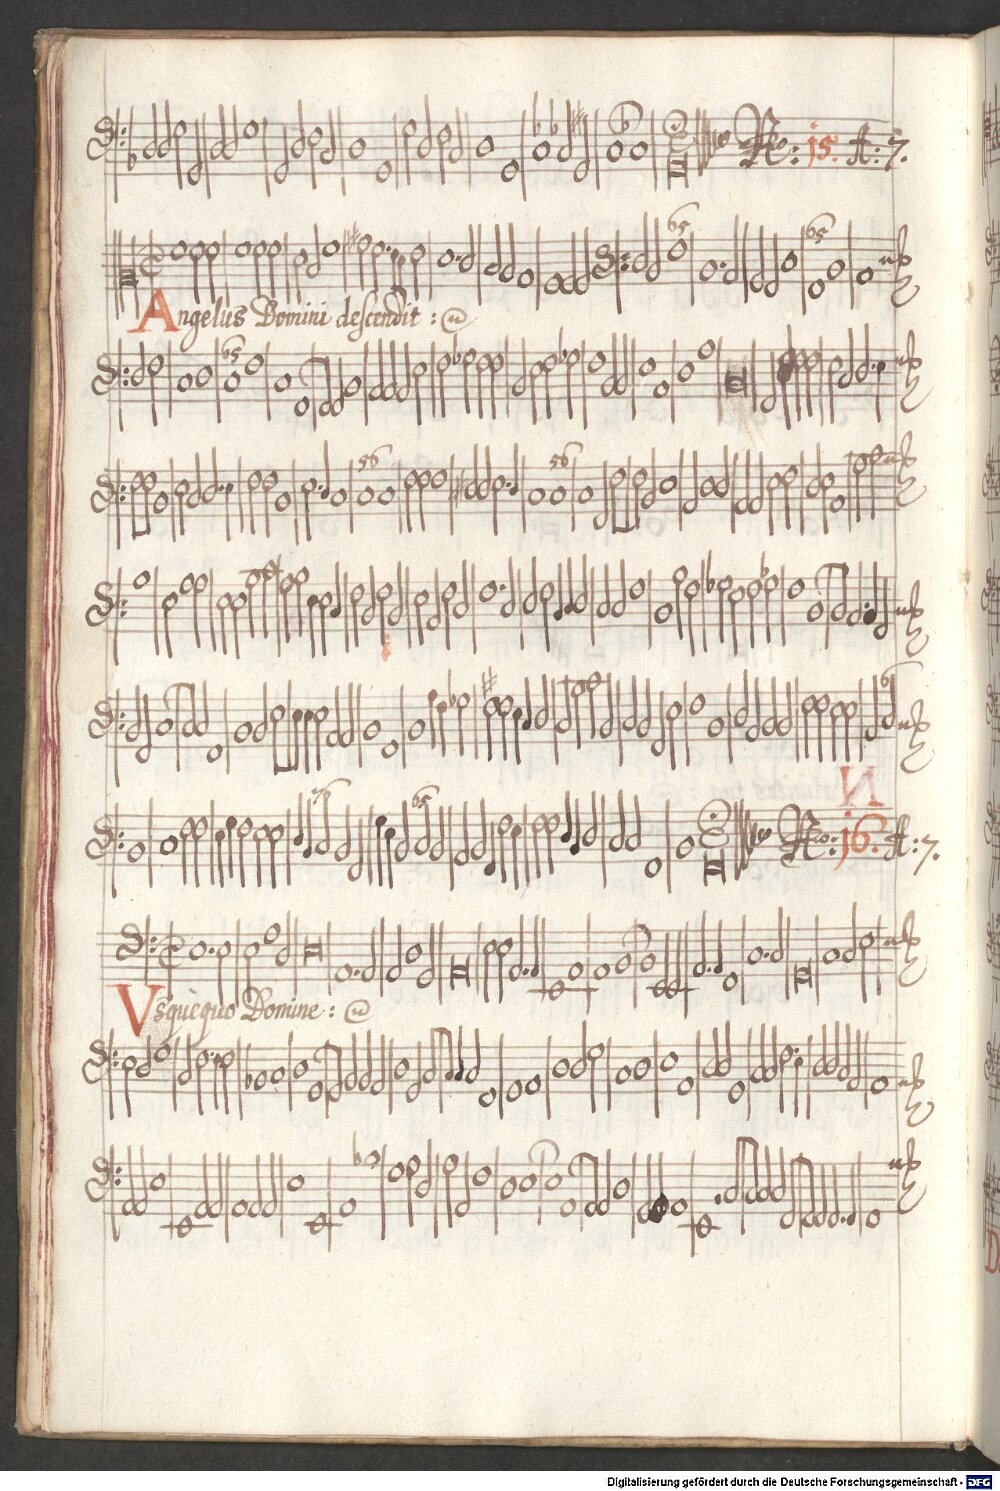 Re: 15. A: 7.
65 65
Angelus Domini descendit :
65
56 56
6
76 65
N
No: 16. A: 7.
Vsquequo Domine :
Digitalisierung gefördert durch die Deutsche Forschungsgemeinschaft - DFG